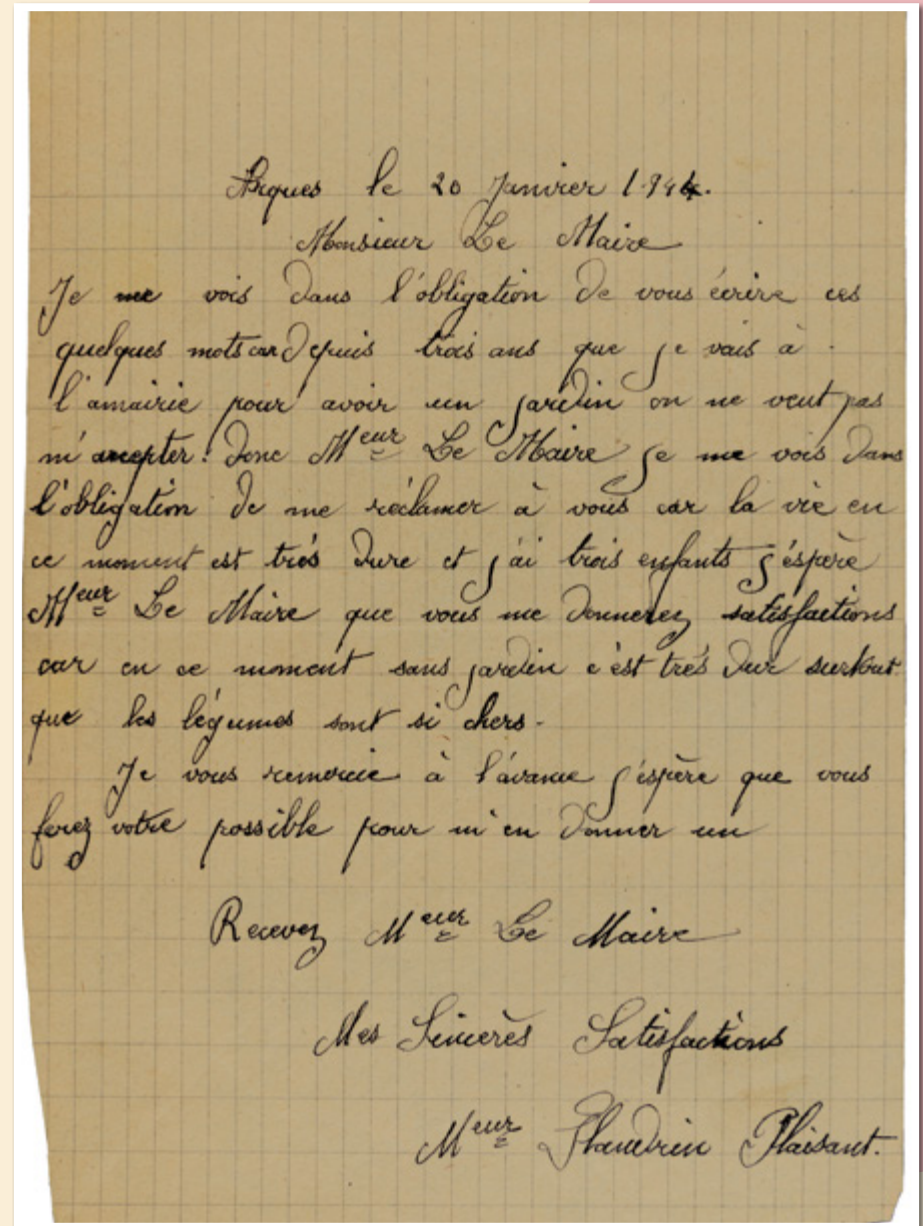 Arques le 20 Janvier 1.944.
Monsieur Le Maire
Je me vois dans l'obligation de vous écrire ces
quelques mots car depuis trois ans que je vais à
l'amairie pour avoir un jardin on ne veut pas
m'accepter. donc Meur Le Maire je me vois dans
l'obligation de me réclamer à vous car la vie en
ce moment est très dure et j'ai trois enfants j'éspère
Meur Le Maire que vous me donnerez satisfactions
car en ce moment sans jardin c'est trés dur surtout
que les légumes sont si chers.
Je vous remercie à l'avance j'éspère que vous
ferez votre possible pour m'en donner un
Recevez Meur Le Maire
Mes Sincerès Satisfactions
Meur Flandrin Plaisant.